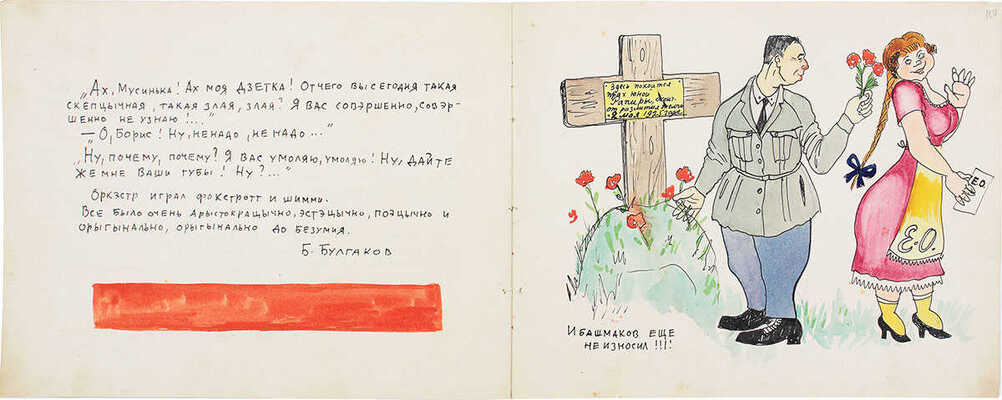 „Ах, Мусинька! Ах моя дзетка! Отчего вы сегодня такая
скепцычная, такая злая, злая? Я вас сопэршенно, совэр-
шенно не узнаю!..."
— О, Борис! Ну, не надо, не надо..."
„Ну, почему, почему? Я вас умоляю, умоляю! Ну, дайте
же мне ваши губы! Ну?..."
Оркэстр играл фокстротт и шимми.
Все было очень арыстокращычно, эстэцычно, поэцычно и
орыгынально, орыгынально до безумия.
Б. Булгаков
Здесь покоится
прах юной
от
8 мая 1925 года
Е.О.
Е.О.
И башмаков еще
не износил!!!